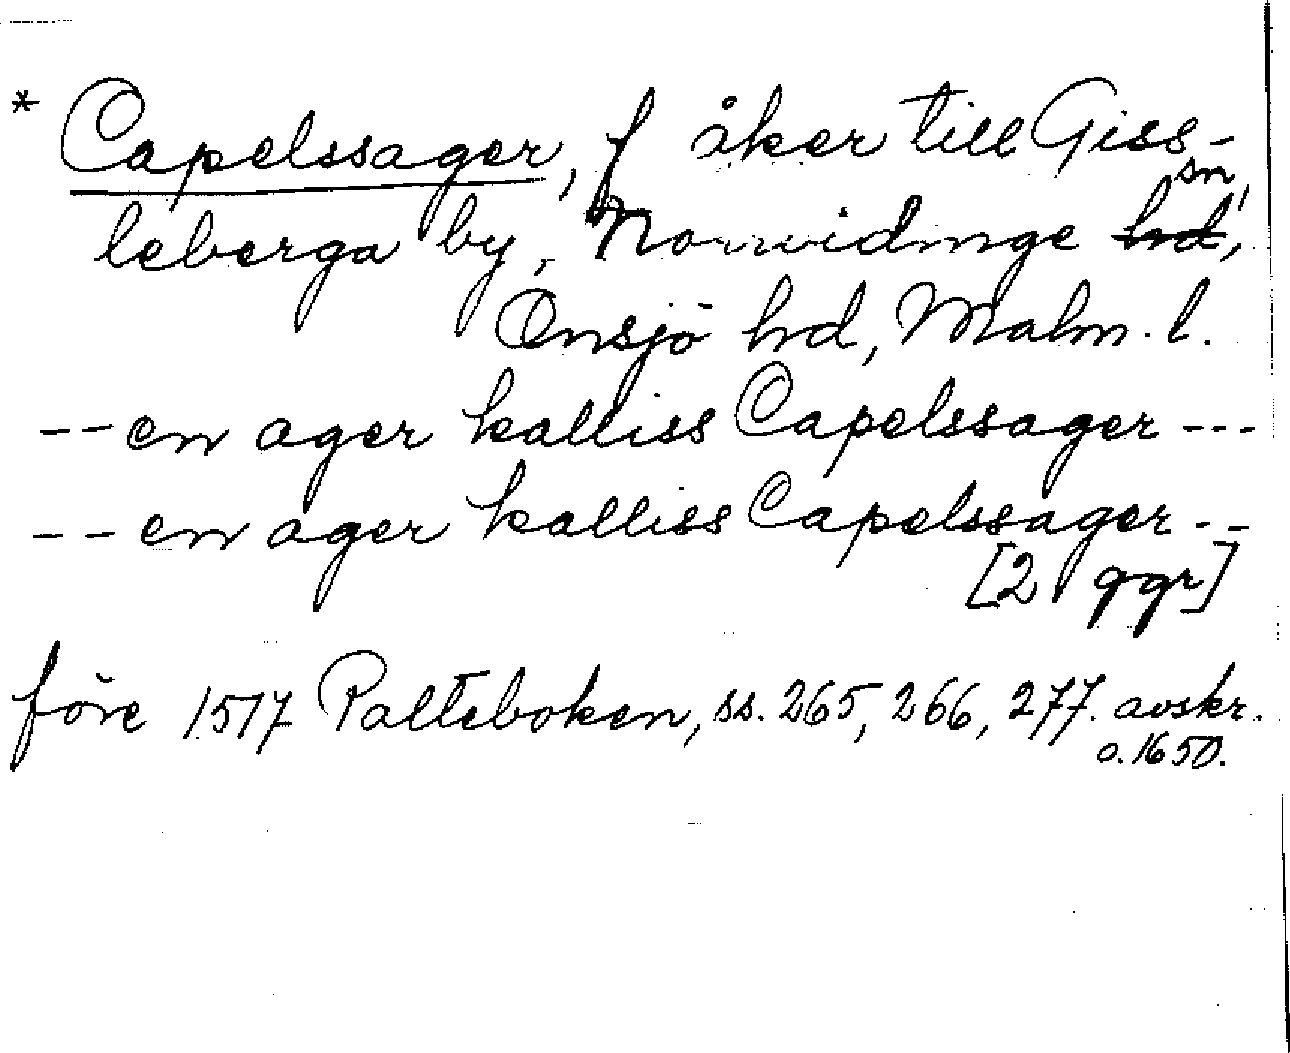 * Capelssager, f åker till Giss-
leberga by, Norrvidinge ~~hd~~ sn,
Onsjö hd, Malm. l.
-- en ager kalliss Capelssager ---
-- en ager kalliss Capelssager --
[2 ggr]
före 1517 Palteboken, ss. 265, 266, 277. avskr.
o. 1650.